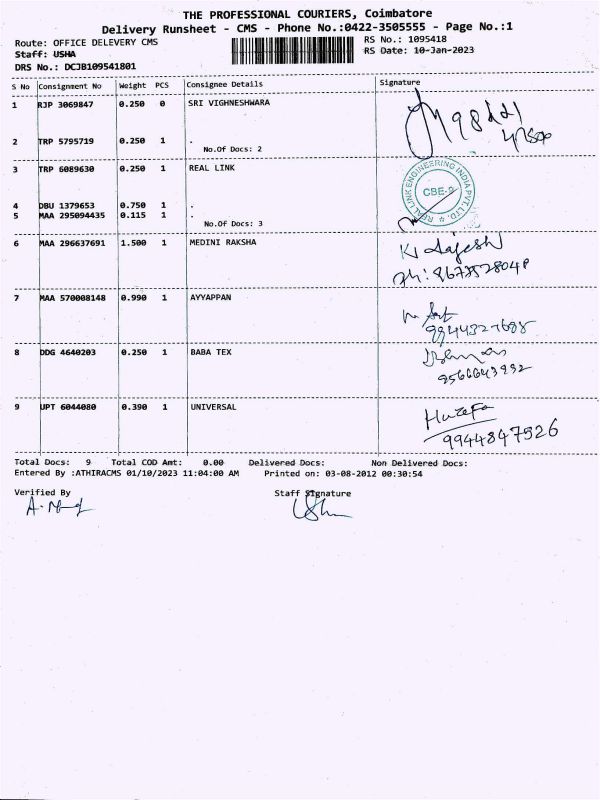 THE PROFESSIONAL COURIERS, Coimbatore
Delivery Runsheet - CMS - Phone No.:0422-3505555 - Page No.:1
Route: OFFICE DELEVERY CMS
RS No.: 1095418
Staff: USHA
RS Date: 10-Jan-2023
DRS No.: DCJB109541801
S No Consignment No Weight PCS Consignee Details Signature
1 RJP 3069847 0.250 0 SRI VIGHNESHWARA
2 TRP 5795719 0.250 1 .
No.Of Docs: 2
3 TRP 6089630 0.250 1 REAL LINK
REAL LINK ENGINEERING INDIA PVT. LTD.
CBE-9
4 DBU 1379653 0.750 1 .
5 MAA 295094435 0.115 1 .
No.Of Docs: 3
6 MAA 296637691 1.500 1 MEDINI RAKSHA
K. Rajesh
7 MAA 570008148 0.990 1 AYYAPPAN
8 DDG 4640203 0.250 1 BABA TEX
9566643992
9 UPT 6044080 0.390 1 UNIVERSAL
Huzefa
9944847526
Total Docs: 9 Total COD Amt: 0.00 Delivered Docs: Non Delivered Docs:
Entered By :ATHIRACMS 01/10/2023 11:04:00 AM Printed on: 03-08-2012 00:30:54
Verified By Staff Signature